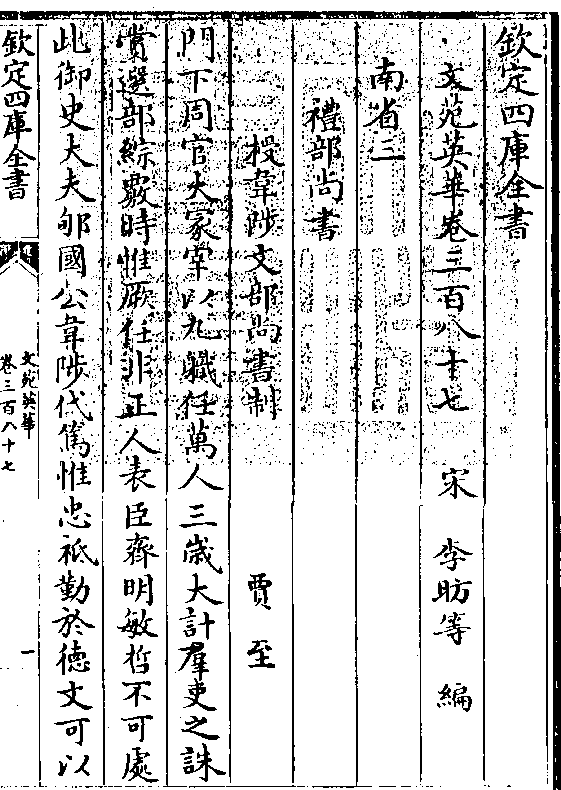 欽定四庫全書
文苑英華卷三百八十七
宋 李昉等 編
南省三
禮部尚書
授韋陟文部尚書制
賈至
門下周官大冢宰以九職任萬人三歲大計羣吏之誅
賞選部綜覈時惟厥任非正人表臣齊明敏哲不可處
此御史大夫郇國公韋陟代篤惟忠祗勤於徳文可以
欽定四庫全書
文苑英華
卷三百八十七
一